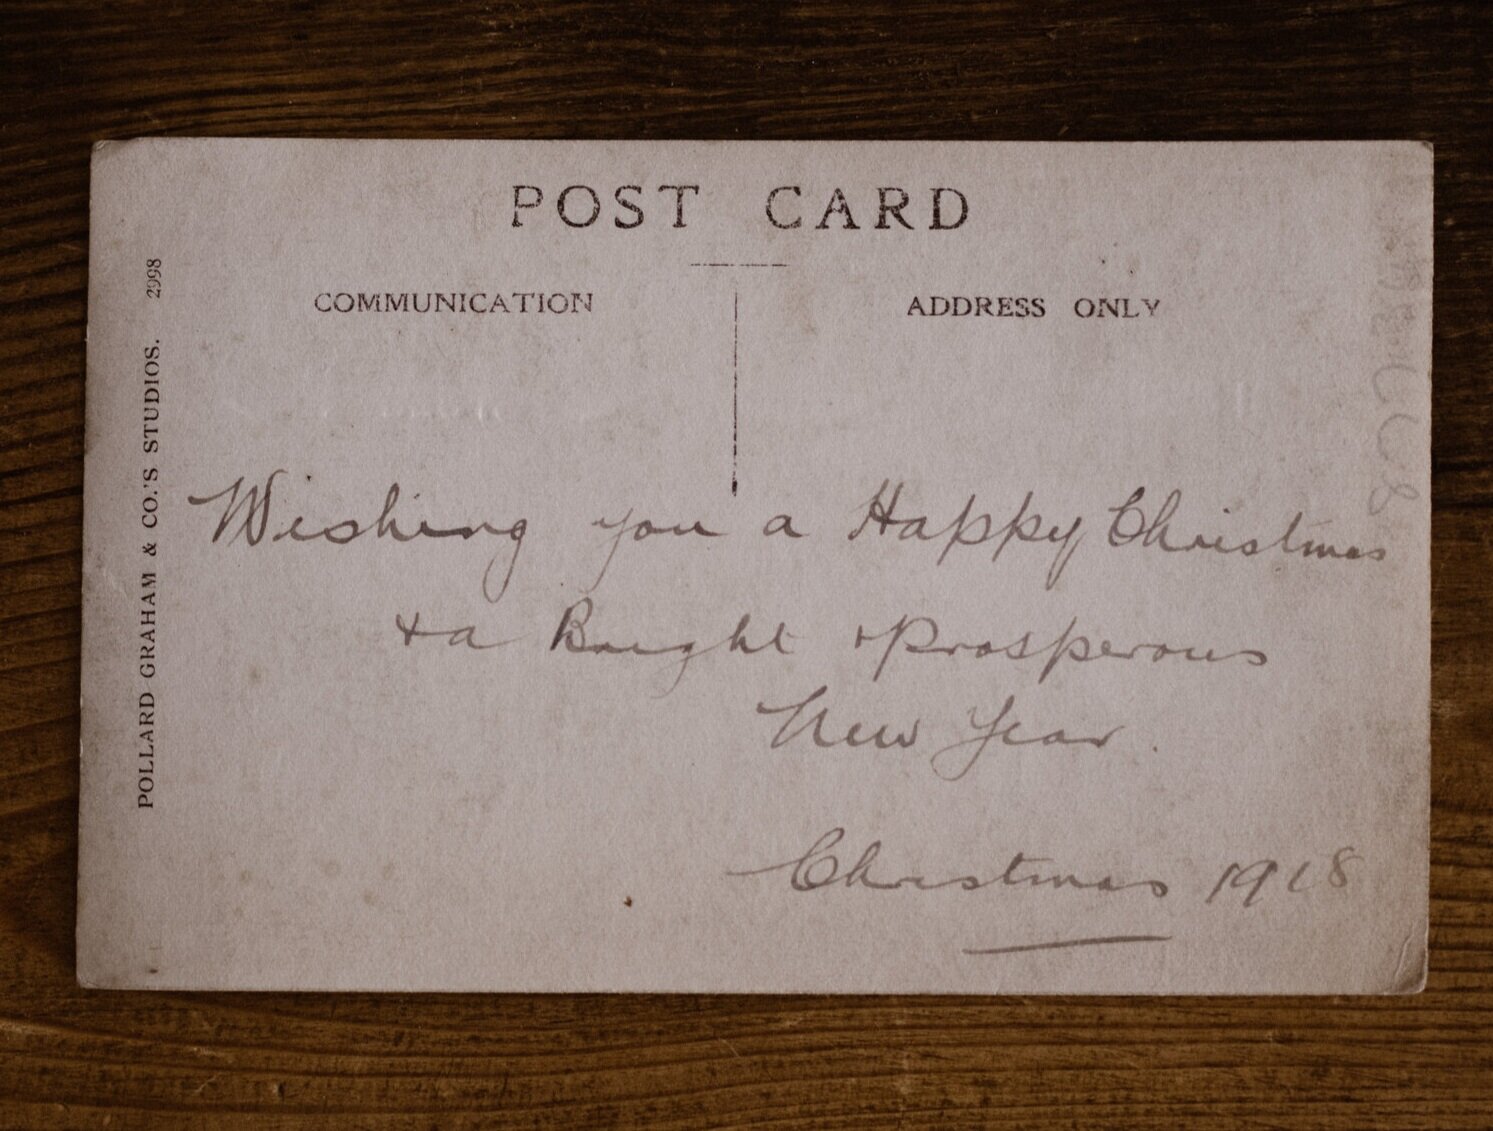 POST CARD
COMMUNICATION
ADDRESS ONLY
POLLARD GRAHAM & CO.'S STUDIOS. 2998
Wishing you a Happy Christmas
& a Bright & Prosperous
New Year.
Christmas 1918